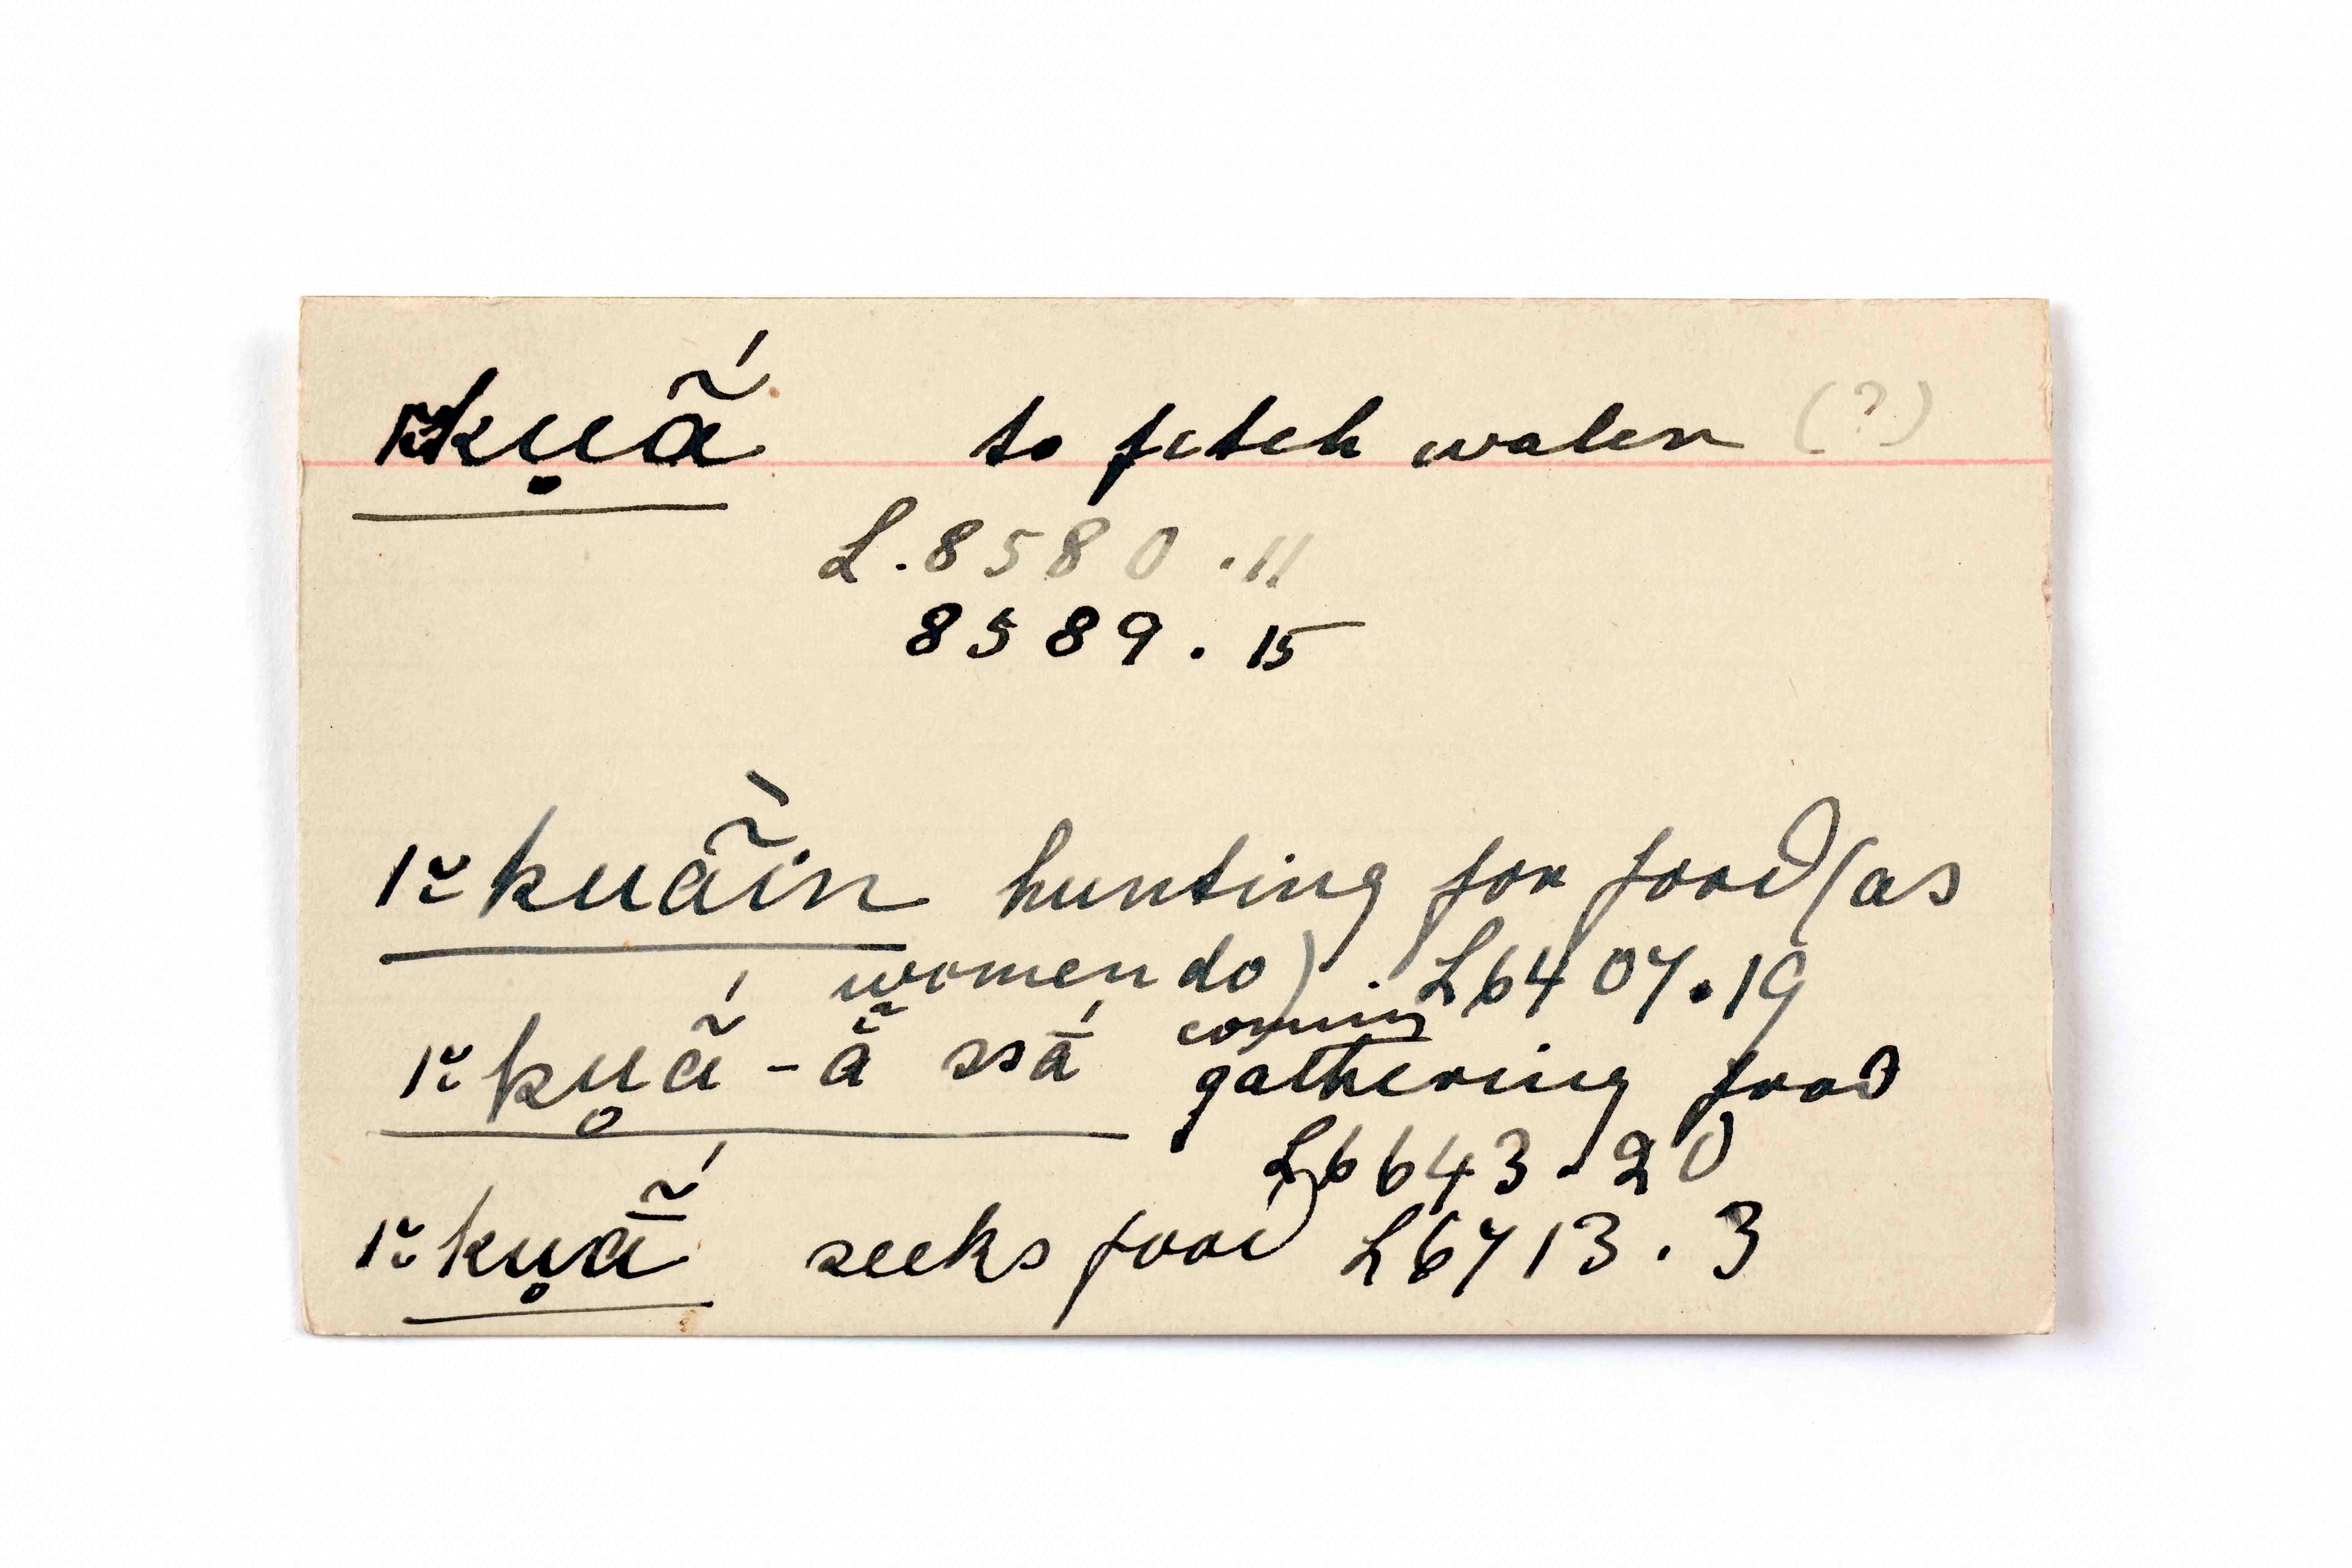 |≈kụã́ to fetch water (?)
L.8580.11
8589.15
|≈kuã̀in hunting for food (as
women do). L6407.19
|≈kụ̥ã́-ã̈ ssā́ coming
gathering food
L6643.20
|≈kụ̄ã́ seeks food L6713.3